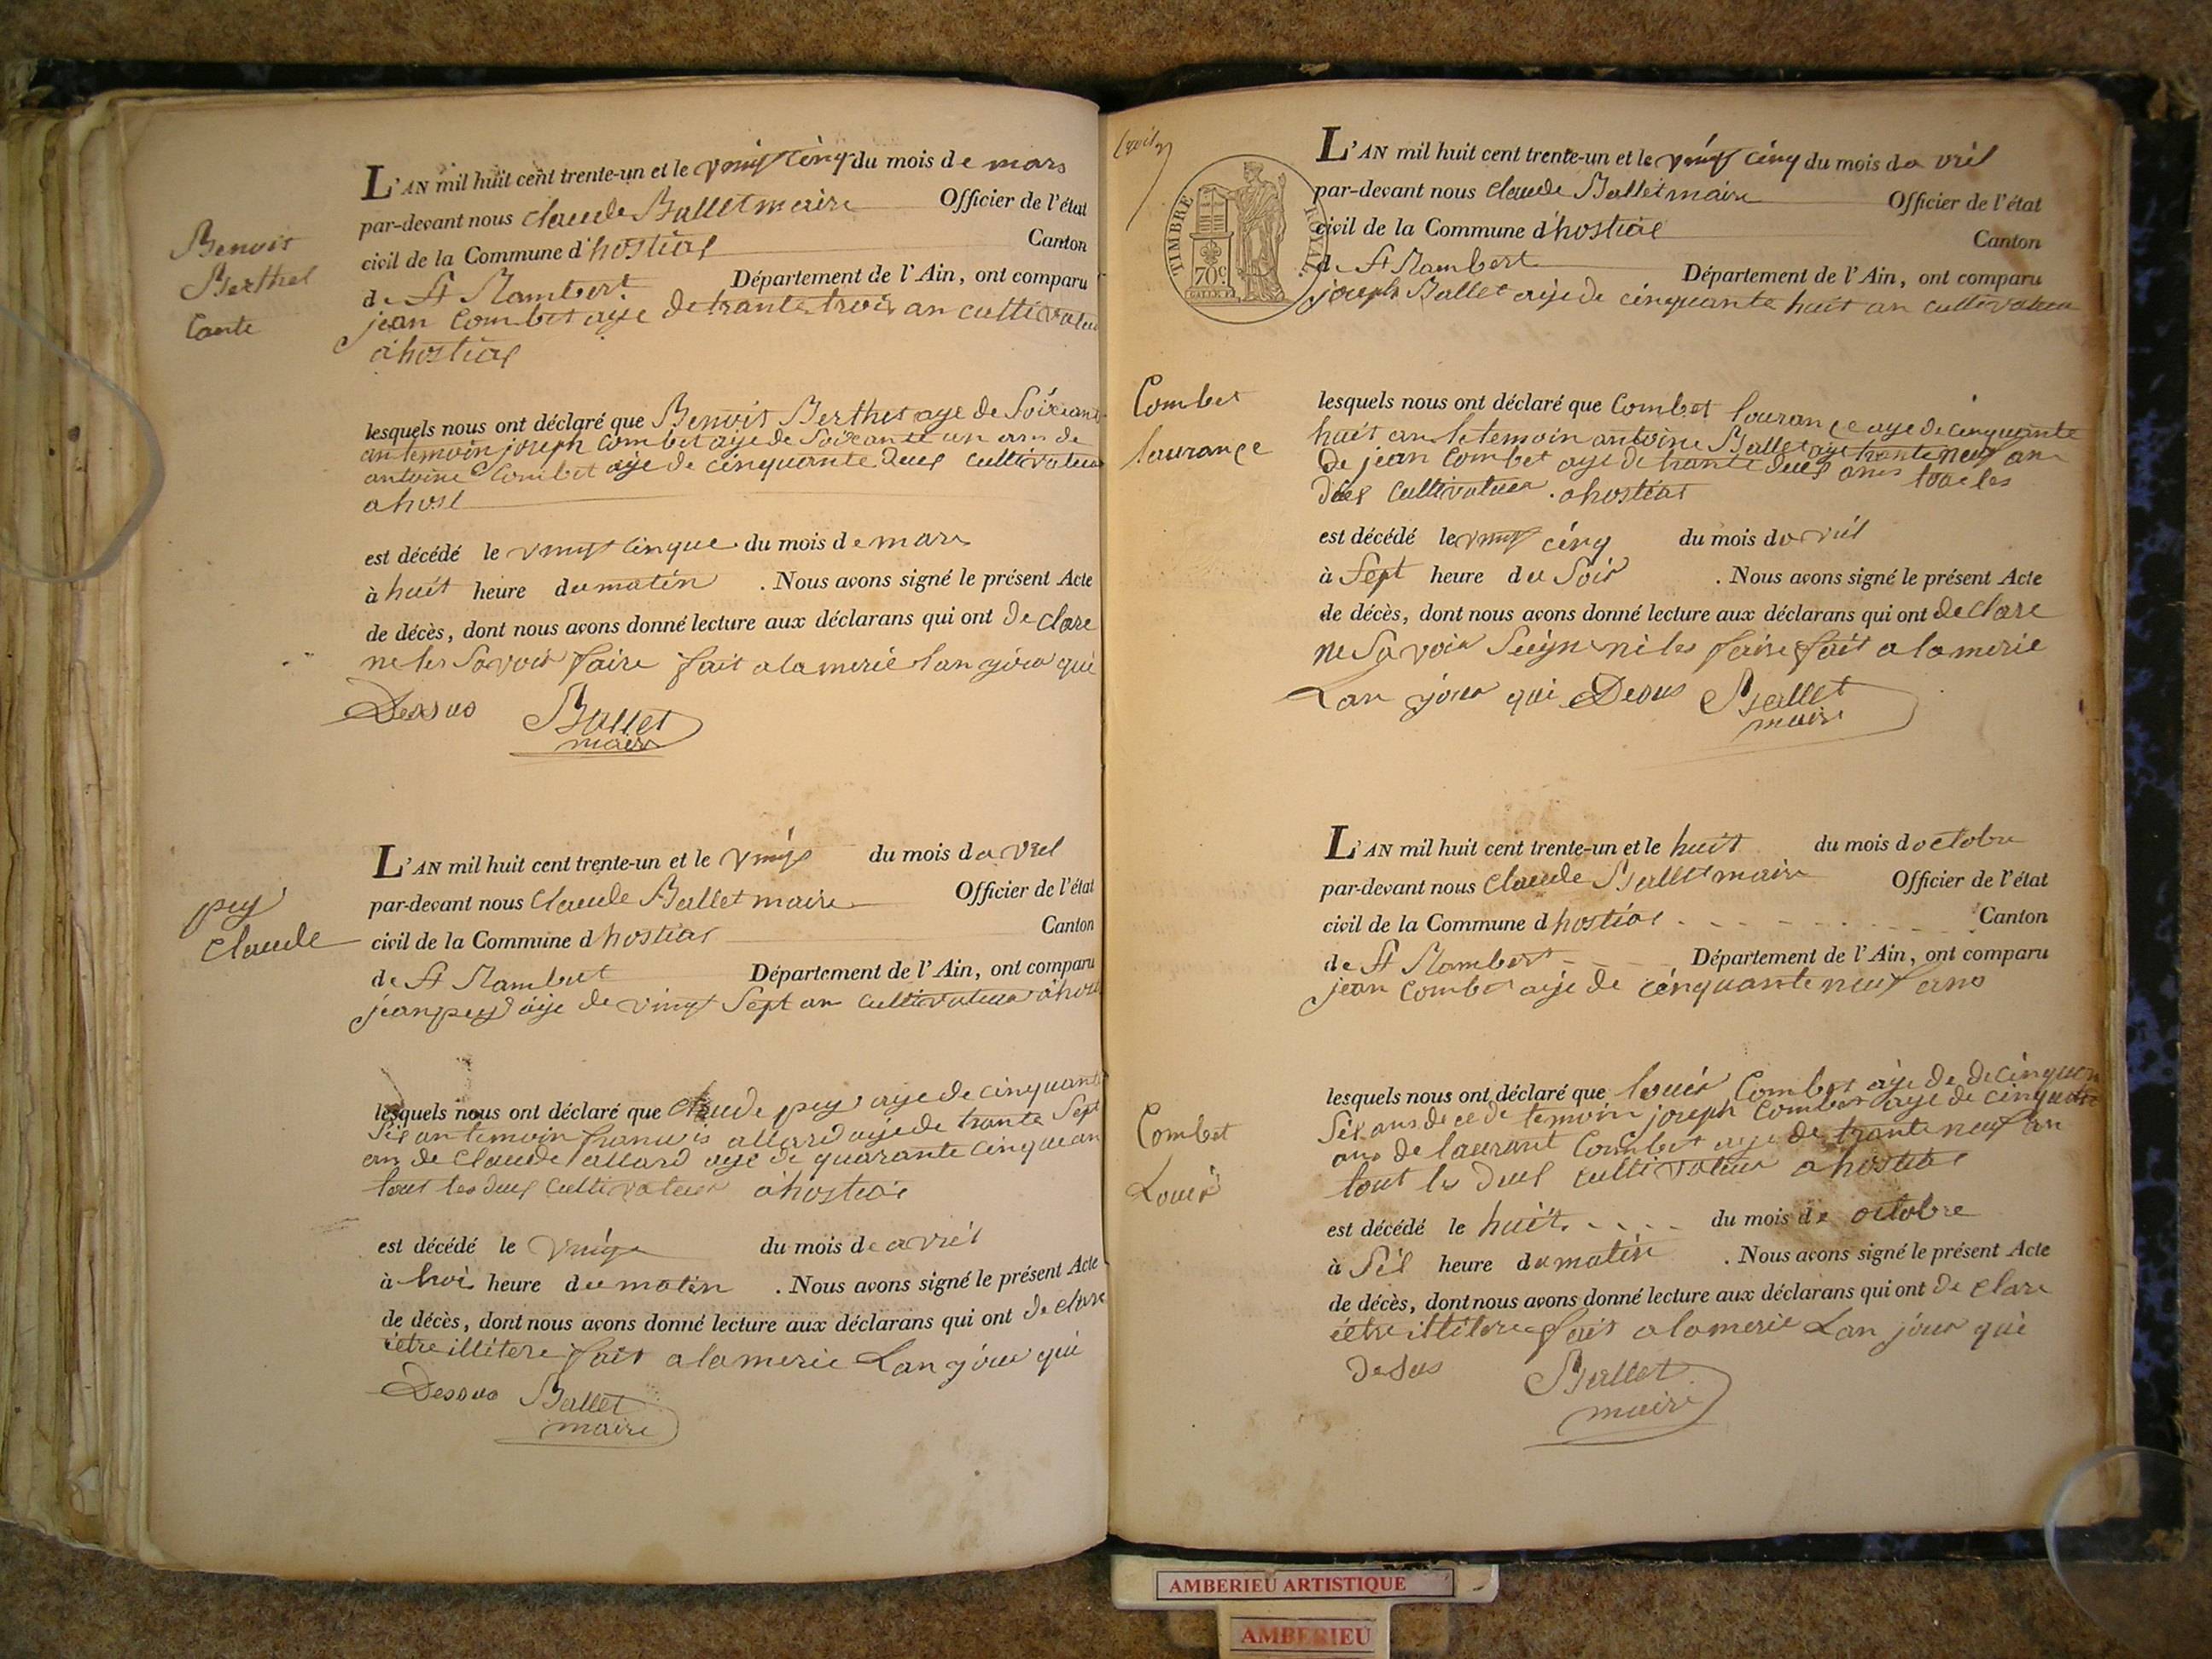 Benois
Berthet
Cante
L'AN mil huit cent trente-un et le vingt cinq du mois de mars
par-devant nous Claude Ballet maire Officier de l'état
civil de la Commune d'hostias Canton
de St Rambert Département de l'Ain, ont comparu
jean Combet aye de trante trois an cultivateu
a hostias
lesquels nous ont déclaré que Benois Berthet aye de Soixant
an temoin joseph Combet aye de Soixante un ans de
antoine Combet aye de cinquante deus cultivateur
a host
est décédé le vingt cinque du mois de mars
à huit heure du matin . Nous avons signé le présent Acte
de décès, dont nous avons donné lecture aux déclarans qui ont de clare
ne les Savoir faire fait a la merie lan jour qui
Dessus Ballet
maire
pey
Claude
L'AN mil huit cent trente-un et le vingt du mois d avril
par-devant nous Claude Ballet maire Officier de l'état
civil de la Commune d hostias Canton
de St Rambert Département de l'Ain, ont comparu
jean pey aye de vingt Sept an cultivateur a host
lesquels nous ont déclaré que Claude pey aye de cinquante
Sis an temoin francois allard aye de trante Sept
an de Claude allard aye de quarante cinque an
tout les deus cultivateur a hostias
est décédé le vingt du mois de avril
à troi heure du matin . Nous avons signé le présent Acte
de décès, dont nous avons donné lecture aux déclarans qui ont de clare
être illitere fait a la merie Lan jour qui
Dessus Ballet
maire
TIMBRE ROYAL
70c
L'AN mil huit cent trente-un et le vingt cinq du mois d a vril
par-devant nous Claude Ballet maire Officier de l'état
civil de la Commune d'hostias Canton
de St Rambert Département de l'Ain, ont comparu
joseph Ballet aye de cinquante huit an cultivateur
Combet
laurance
lesquels nous ont déclaré que Combet lourance aye de cinquante
huit an le temoin antoine Ballet aye trante neuf an
de jean Combet aye de trante deus ans tou les
deus cultivateur a hostias
est décédé le vingt cinq du mois d avril
à Sept heure du Soir . Nous avons signé le présent Acte
de décès, dont nous avons donné lecture aux déclarans qui ont de clare
ne Savoir Seigne ni les faire fait a la merie
Lan jour qui Desus Ballet
maire
L'AN mil huit cent trente-un et le huit du mois d octobre
par-devant nous Claude Ballet maire Officier de l'état
civil de la Commune d hostias Canton
de St Rambert Département de l'Ain, ont comparu
jean Combet aye de cinquante neuf ans
Combet
Loues
lesquels nous ont déclaré que loues Combet aye de de cinquan
Sis ans de ce de temoin joseph Combet aye de cinquante
ans de laurant Combet aye de trante neuf an
tout le deus cultivateur a hostias
est décédé le huit du mois de octobre
à Sis heure du matin . Nous avons signé le présent Acte
de décès, dont nous avons donné lecture aux déclarans qui ont de clare
être illitere fait a la merie Lan jour qui
desus Ballet
maire
AMBERIEU ARTISTIQUE
AMBERIEU